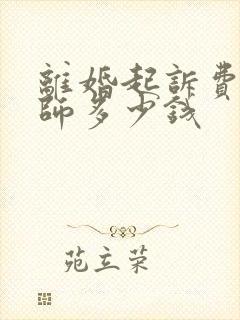 離婚起訴費
師多少錢
苑立荣